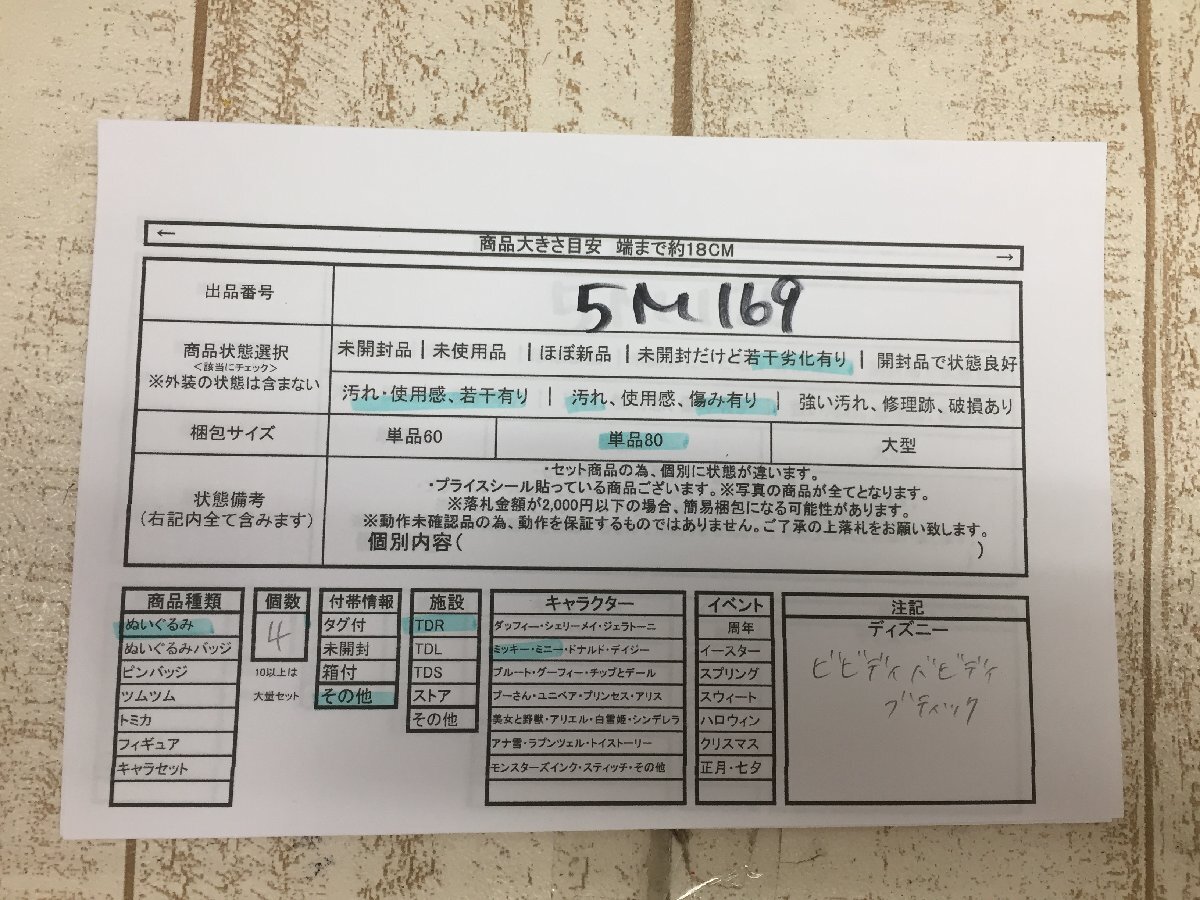 ←
商品大きさ目安　端まで約18CM
→
出品番号
5M169
商品状態選択
<該当にチェック>
※外装の状態は含まない
未開封品 | 未使用品 | ほぼ新品 | 未開封だけど若干劣化有り | 開封品で状態良好
汚れ・使用感、若干有り | 汚れ、使用感、傷み有り | 強い汚れ、修理跡、破損あり
梱包サイズ
単品60
単品80
大型
状態備考
(右記内全て含みます)
・セット商品の為、個別に状態が違います。
・プライスシール貼っている商品ございます。※写真の商品が全てとなります。
※落札金額が2,000円以下の場合、簡易梱包になる可能性があります。
※動作未確認品の為、動作を保証するものではありません。ご了承の上落札をお願い致します。
個別内容(　)
商品種類
ぬいぐるみ
ぬいぐるみバッジ
ピンバッジ
ツムツム
トミカ
フィギュア
キャラセット
個数
4
10以上は
大量セット
付帯情報
タグ付
未開封
箱付
その他
施設
TDR
TDL
TDS
ストア
その他
キャラクター
ダッフィー・シェリーメイ・ジェラトーニ
ミッキー・ミニー・ドナルド・デイジー
プルート・グーフィー・チップとデール
プーさん・ユニベア・プリンセス・アリス
美女と野獣・アリエル・白雪姫・シンデレラ
アナ雪・ラプンツェル・トイストーリー
モンスターズインク・スティッチ・その他
イベント
周年
イースター
スプリング
スウィート
ハロウィン
クリスマス
正月・七夕
注記
ディズニー
ビビディバビディ
ブティック